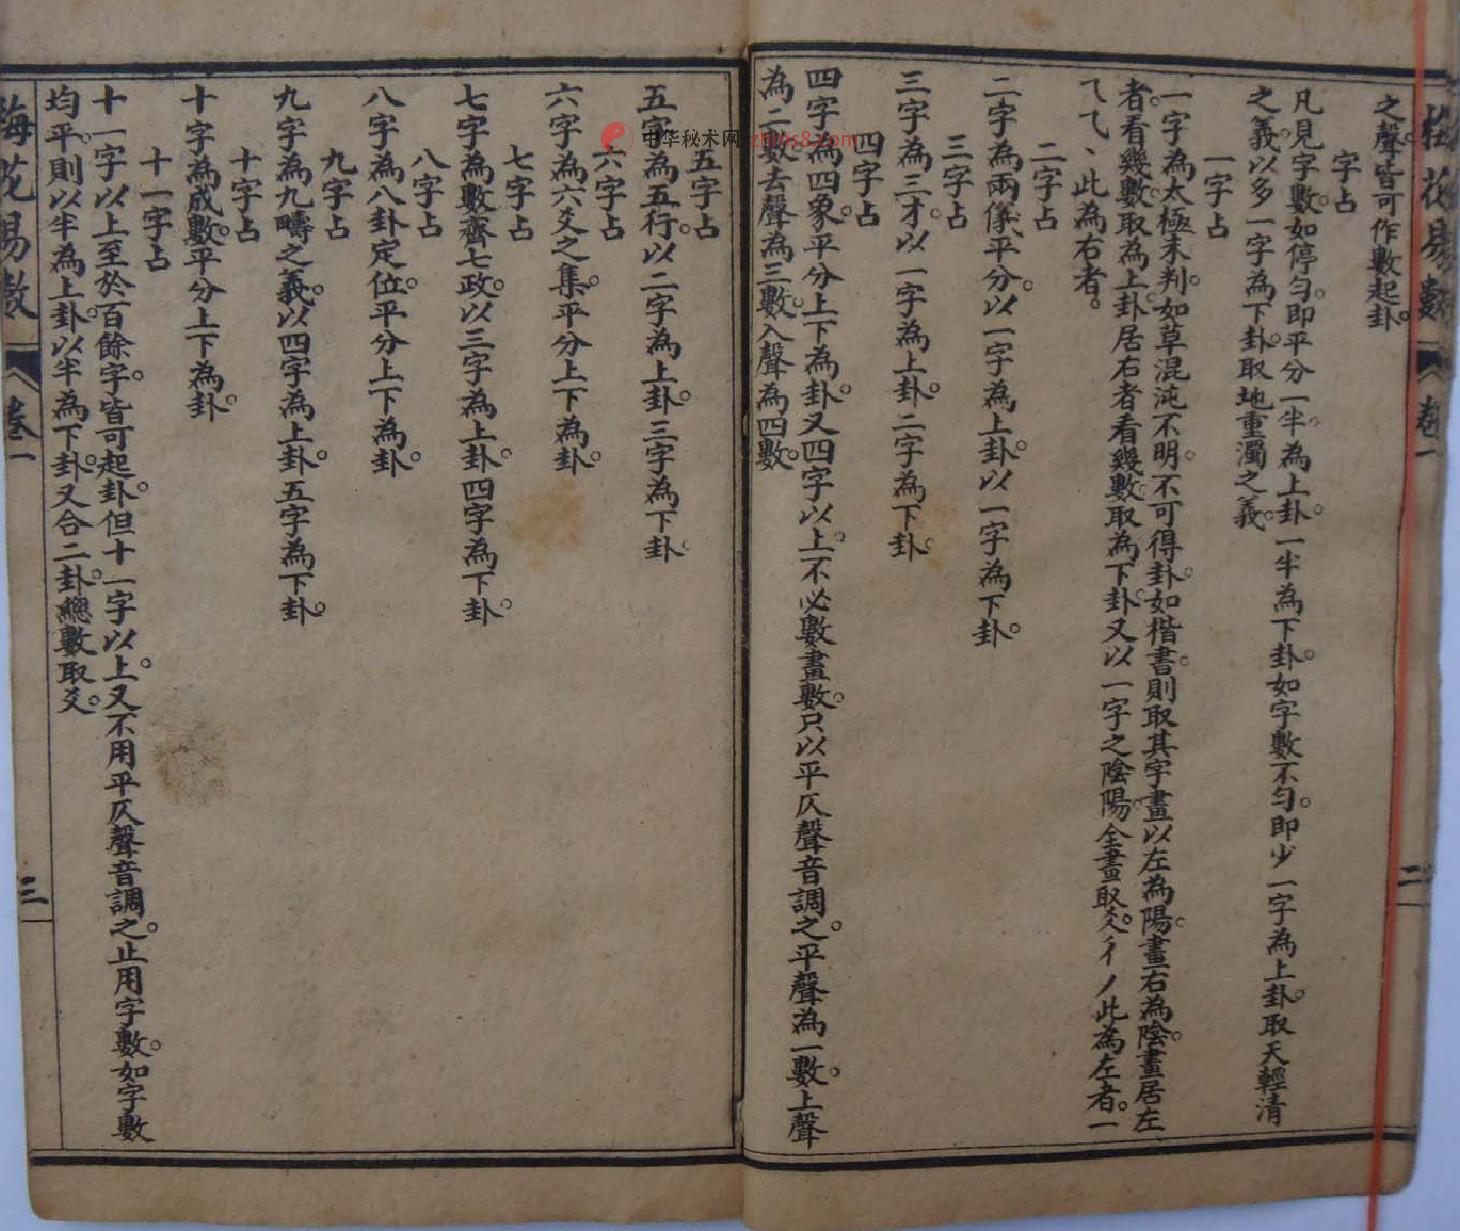 梅花易數 卷一 二
之聲。皆可作數起卦。
字占
凡見字數。如停勻。即平分一半為上卦。一半為下卦。如字數不勻。即少一字為上卦。取天輕清
之義。以多一字為下卦。取地重濁之義。
一字占
一字為太極未判。如草混沌不明。不可得卦。如楷書。則取其字畫以左為陽。畫右為陰。畫居左
者。看幾數。取為上卦。居右者看幾數。取為下卦。又以一字之陰陽。全畫取爻。彳丿此為左者。一
乁乀丶此為右者。
二字占
二字為兩儀平分。以一字為上卦。以一字為下卦。
三字占
三字為三才。以一字為上卦。二字為下卦。
四字占
四字為四象。平分上下為卦。又四字以上。不必數畫數。只以平仄聲音調之。平聲為一數。上聲
為二數。去聲為三數。入聲為四數。
中华秘术网 zhms8.com
五字占
五字為五行。以二字為上卦。三字為下卦。
六字占
六字為六爻之集。平分上下為卦。
七字占
七字為數齊七政。以三字為上卦。四字為下卦。
八字占
八字為八卦定位。平分上下為卦。
九字占
九字為九疇之義。以四字為上卦。五字為下卦。
十字占
十字為成數。平分上下為卦。
十一字占
十一字以上至於百餘字。皆可起卦。但十一字以上。又不用平仄聲音調之。止用字數。如字數
均平。則以半為上卦。以半為下卦。又合二卦。總數取爻。
梅花易數 卷一 三